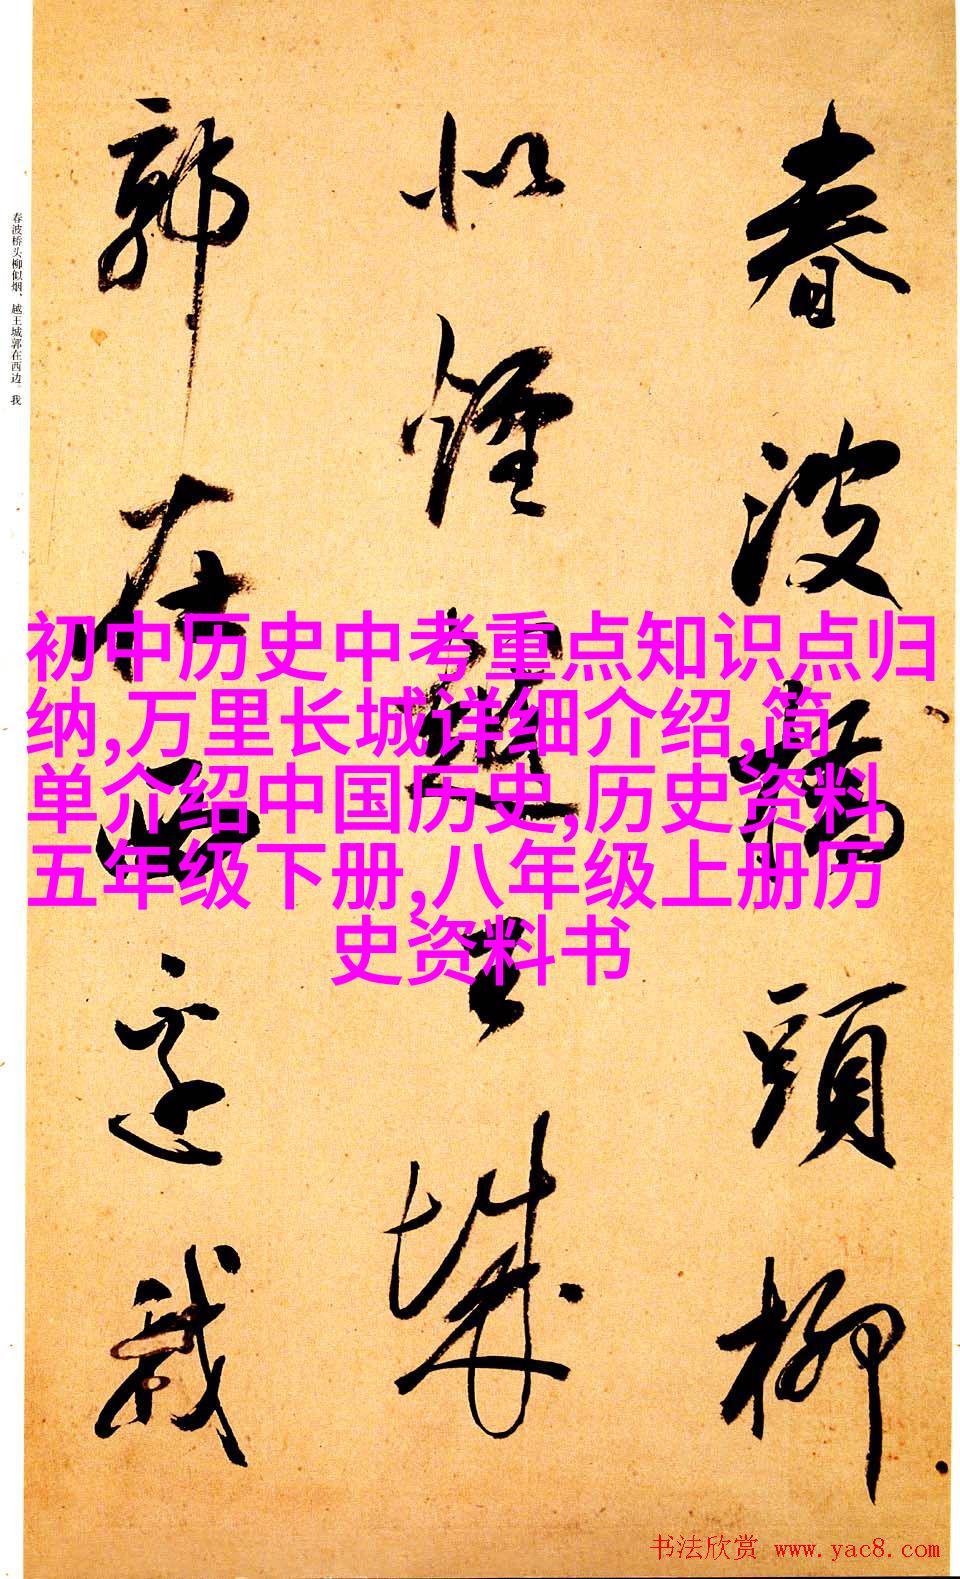 春波橋頭柳
似煙越王城
郭在西邊我
春波桥头柳似烟、越王城郭在西边。我
初中历史中考重点知识点归
纳,万里长城详细介绍,简
单介绍中国历史,历史资料
五年级下册,八年级上册历
史资料书
书法欣赏 www.yac8.com